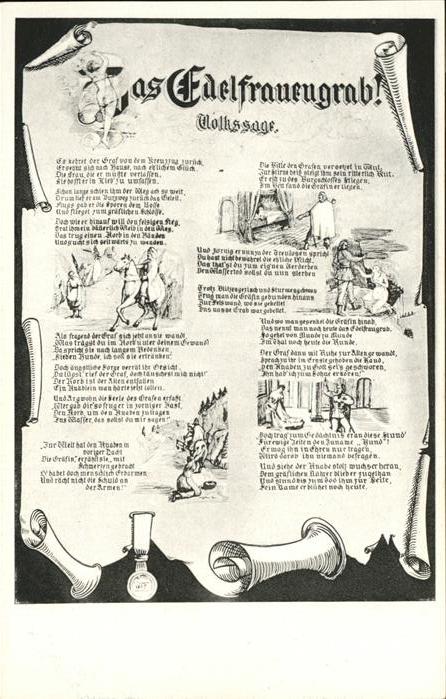 Das Edelfrauengrab!
Volkssage.
Es kehret der Graf vom dem Kreuzzug zurück,
Er sehnt sich nach Hause, nach ehlichem Glück.
Die Frau, die er mußte verlassen,
Sie hofft er in Lieb' zu umfassen.
Schon lange schien ihm der Weg ach so weit,
Drum ließ er am Burgweg zurück das Geleit.
Flugs gab er die Sporen dem Rosse
Und fliegt zum gräflichen Schlosse.
Doch wie er hinauf will den felsigen Steg,
Tritt ihm ein bäurisch Weib in den Weg.
Das trug einen Korb in den Händen
Und sucht sich seitwärts zu wenden.
Als fragend der Graf sich jetzt an sie wandt,
Was trägst du im Korb unter deinem Gewand?
Da spricht sie nach langem Bedenken
Sieben Hunde, ich soll sie ertränken.
Doch ängstliche Sorge verrät ihr Gesicht.
Du lügst rief der Graf, doch täuschest mich nicht!
Der Korb ist der Alten entfallen
Ein Knäblein man hörte jetzt lallen.
Und Argwohn die Seele des Grafen erfaßt
Wer gab dir's so frug er in zorniger Hast,
Den Korb, um den Knaben zu tragen
Ins Wasser, das sollst du mir sagen!"
"Zur Welt hat den Knaben in
voriger Nacht
Die Gräfin", erzählt sie, "mit
Schmerzen gebracht
O habet doch menschlich Erbarmen
Und rächt nicht die Schuld an
der Armen!"
Die Bitte den Grafen versetzet in Wut,
Zur Stirne heiß steigt ihm sein ritterlich Blut,
Er eilt in des Burgschlosses Stiegen,
Im Bett fand die Gräfin er liegen.
Und zornig er nun zu der Treulosen spricht
Du hast nicht bewahret die ehliche Pflicht.
Das that'st du zum eignen Verderben
Den Wassertod sollst du nun sterben
Trotz Blitzesgeleucht und Sturmesgebraus
Trug man die Gräfin gebunden hinaus
Zur Felswand, wo sie gebettet
Ins nasse Grab war gebettet.
Und wo man gesenket die Gräfin hinab,
Das nennt man noch heute das Edelfrauengrab.
So gehet von Munde zu Munde
Im Thal noch heute die Kunde.
Der Graf dann mit Ruhe zur Alten gewandt,
Sprach zu ihr im Ernste gehoben die Hand,
Den Knaben zu Gott sei's geschworen,
Ihn hab' ich zum Sohne erkoren!"
Doch trag' zum Gedächtnis er an diese Stund'
Für ewige Zeiten den Zuname "Hund"!
Er mag ihn in Ehren nur tragen,
Wird darob ihn niemand befragen.
Und siehe der Knabe stolz wuchs er heran,
Dem gräflichen Vater blieb er zugethan
Und stund bis zum Tod ihm zur Seite,
Sein Name erblühet noch heute.